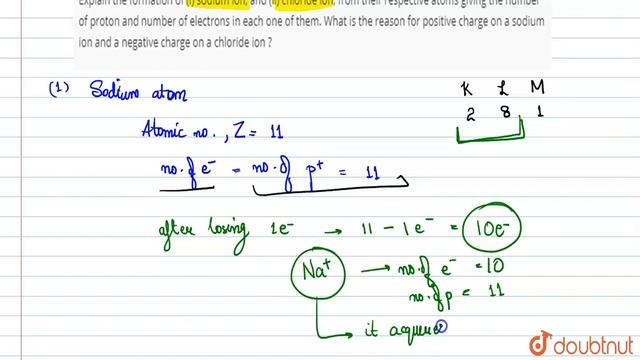 Explain the formation of (i) sodium ion, and (ii) chloride ion, from their respective atoms giving the number
of proton and number of electrons in each one of them. What is the reason for positive charge on a sodium
ion and a negative charge on a chloride ion ?
(1) Sodium atom
K L M
2 8 1
Atomic no., Z = 11
no. of e⁻ = no. of p⁺ = 11
after losing 1e⁻ → 11 - 1e⁻ = 10e⁻
Na⁺ → no. of e⁻ = 10
no. of p = 11
→ it acquire
doubtnut